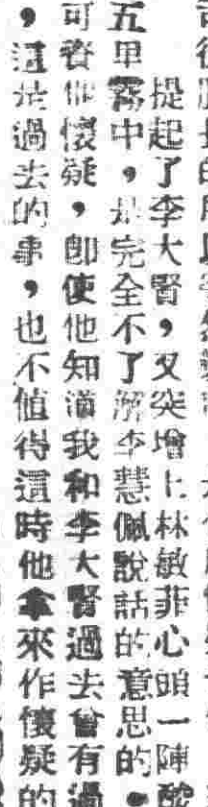 提起了李大賢，又突增上林敏菲心頭一陣酸
五里霧中，是完全不了解李慧佩說話的意思的。
可資他懷疑，卽使他知道我和李大賢過去曾有過
，這是過去的事，也不值得這時他拿來作懷疑的